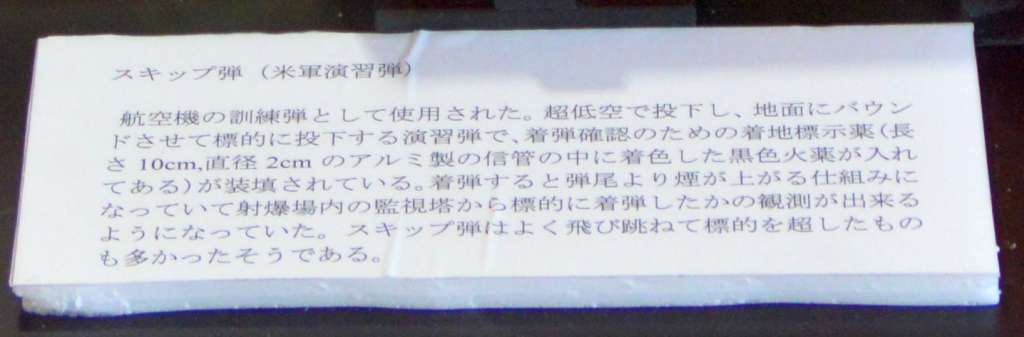 スキップ弾（米軍演習弾）
航空機の訓練弾として使用された。超低空で投下し、地面にバウン
ドさせて標的に投下する演習弾で、着弾確認のための着地標示薬（長
さ 10cm,直径 2cm のアルミ製の信管の中に着色した黒色火薬が入れ
てある）が装填されている。着弾すると弾尾より煙が上がる仕組みに
なっていて射爆場内の監視塔から標的に着弾したかの観測が出来る
ようになっていた。 スキップ弾はよく飛び跳ねて標的を超したもの
も多かったそうである。